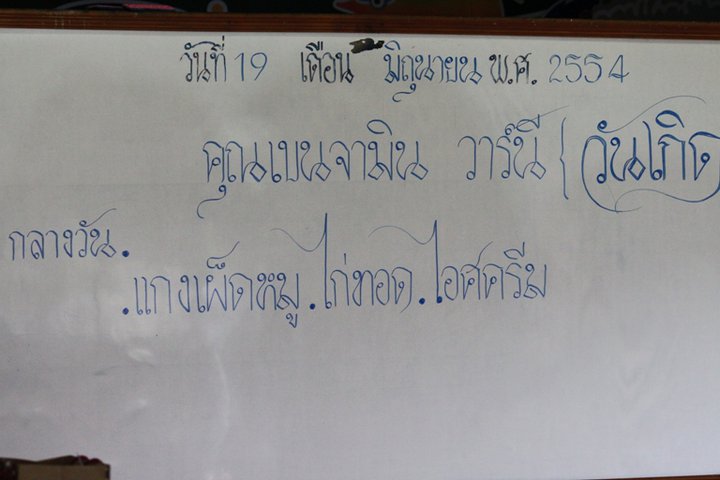 วันที่ 19 เดือน มิถุนายน พ.ศ. 2554
คุณเบนจามิน วาร์นี { วันเกิด
กลางวัน.
.แกงเผ็ดหมู .ไก่ทอด .ไอศครีม